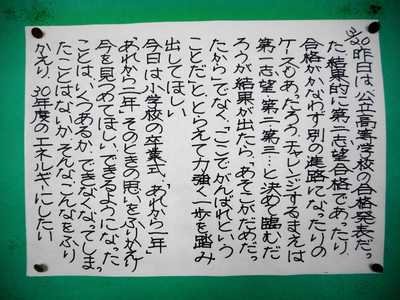 3/20昨日は、公立高等学校の合格発表だっ
た。結果的に第二志望合格であったり、
合格がかなわず別の進路になったりの
ケースもあっただろう。チャレンジするまえは
第一志望・第二・第三…と決めて臨むだ
ろうが、結果が出たら、「あそこがだめだっ
たから」でなく、「ここでがんばれという
ことだ」ととらえて力強く一歩を踏み
出してほしい
今日は小学校の卒業式。「あれから一年」
「あれから二年」そのときの思いをふりかえり
今を見つめてほしい。できるようになった
ことは、いくつあるか、できなくなってしまっ
たことはないか。そんなこんなをふり
かえり、30年度のエネルギーにしたい